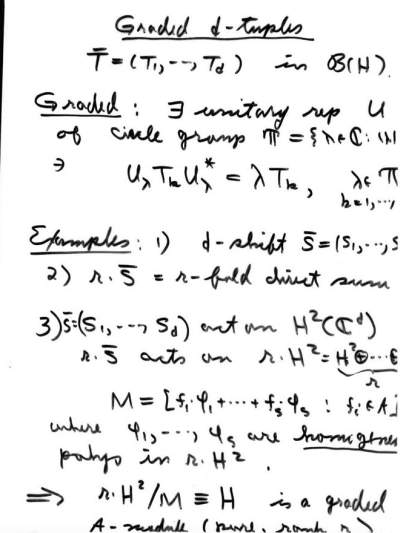 Graded d-tuples
T̄ = (T₁, --, T_d) in B(H).
Graded : ∃ unitary rep U
of circle group 𝕋 = {λ∈ℂ : |λ|
∋ U_λ T_k U_λ* = λ T_k, λ∈𝕋
k=1,--,
Examples : 1) d-shift S̄ = (S₁, --, S
2) r.S̄ = r-fold direct sum
3) S̄=(S₁, --, S_d) act on H²(ℂ^d)
r.S̄ acts on r.H² = H²⊕---⊕
r
M = [f₁·φ₁+---+f_s φ_s : f_i ∈ A]
where φ₁, ---, φ_s are homogene
polys in r.H².
⟹ r.H²/M ≡ H is a graded
A-module (pure, rank r)